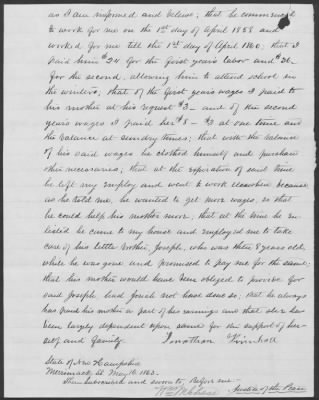 as I am informed and believe; that he commenced
to work for me on the 1st day of April 1858 and
worked for me till the 1st day of April 1860; that I
paid him $24 for the first year's labor and $36-
for the second, allowing him to attend school in
the winters; that of the first year's wages I paid to
his mother at his request $3- and of the second
year's wages I paid her $8- $3 at one time and
the balance at sundry times; that with the balance
of his said wages he clothed himself and purchased
other necessaries; that at the expiration of said time
he left my employ and went to work elsewhere because
as he told me, he wanted to get more wages, so that
he could help his mother more; that at the time he en-
listed he came to my house and employed me to take
care of his little brother, Joseph, who was then 8 years old,
while he was gone and promised to pay me for the same;
that his mother would have been obliged to provide for
said Joseph had Josiah not have done so; that he always
has paid his mother a part of his earnings and that she has
been largely dependent upon same for the support of her-
self and family.
Jonathan
State of New Hampshire
Merrimack, SS May 16. 1863.
Then subscribed and sworn to. Before me-
Wm M Chase Justice of the Peace